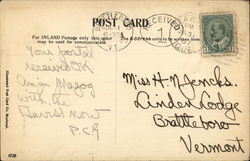 POST CARD
RECEIVED
For INLAND Postage only this space may be used for communication.
The Address only to be
Your postal
received OK
Am in Magog
with the
Now
P.C.G
Miss H. N. Jencks.
Linden Lodge
Brattleboro
Vermont
Illustrated Post Card Co., Montreal.